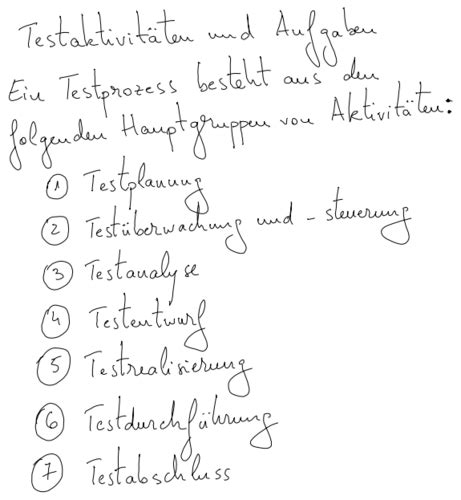 Testaktivitäten und Aufgaben
Ein Testprozess besteht aus den
folgenden Hauptgruppen von Aktivitäten:
① Testplanung
② Testüberwachung und -steuerung
③ Testanalyse
④ Testentwurf
⑤ Testrealisierung
⑥ Testdurchführung
⑦ Testabschluss